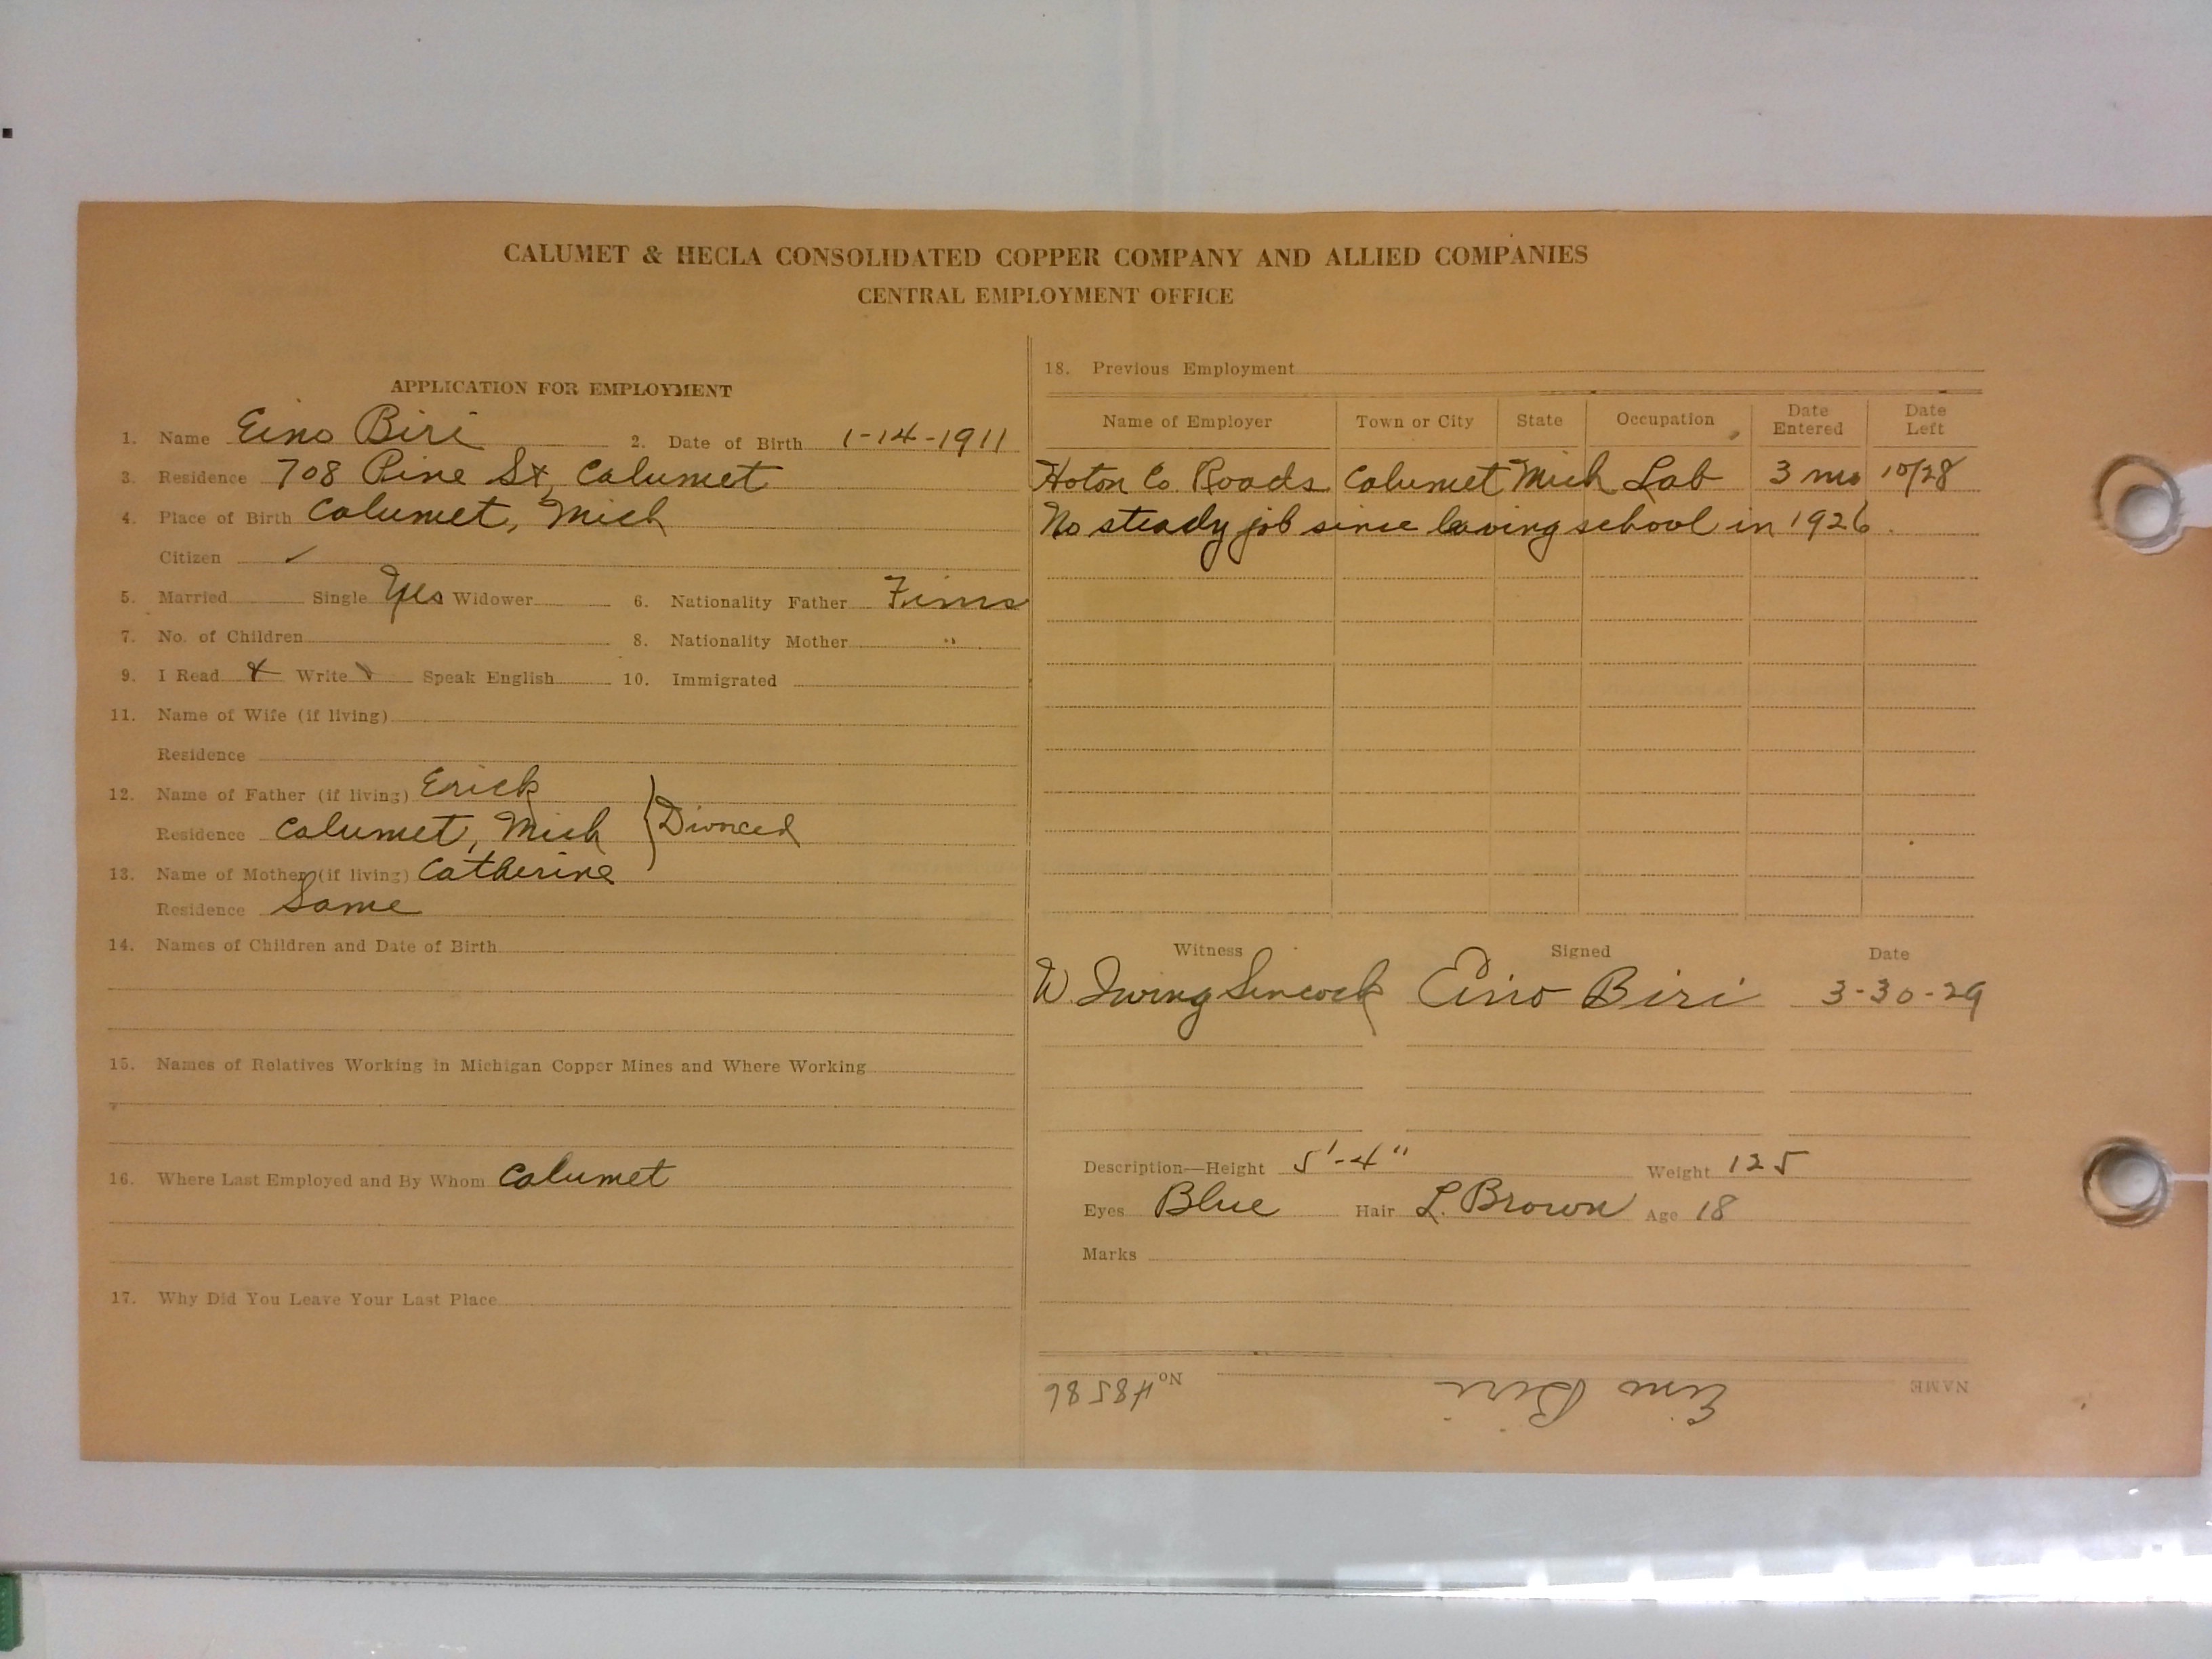 CALUMET & HECLA CONSOLIDATED COPPER COMPANY AND ALLIED COMPANIES
CENTRAL EMPLOYMENT OFFICE
APPLICATION FOR EMPLOYMENT
1. Name Eino Biri 2. Date of Birth 1-14-1911
3. Residence 708 Pine St, Calumet
4. Place of Birth Calumet, Mich
Citizen ✓
5. Married Single Yes Widower 6. Nationality Father Finns
7. No. of Children 8. Nationality Mother "
9. I Read Write Speak English 10. Immigrated
11. Name of Wife (if living)
Residence
12. Name of Father (if living) Erick
Residence Calumet, Mich } Divorced
13. Name of Mother (if living) Catherine
Residence Same
14. Names of Children and Date of Birth
15. Names of Relatives Working in Michigan Copper Mines and Where Working
16. Where Last Employed and By Whom Calumet
17. Why Did You Leave Your Last Place
18. Previous Employment
Name of Employer Town or City State Occupation Date Entered Date Left
Hoton Co. Roads Calumet Mich Lab 3 mo 10/28
No steady job since leaving school in 1926.
Witness Signed Date
W Irving Sincock Eino Biri 3-30-29
Description—Height 5'-4" Weight 125
Eyes Blue Hair L. Brown Age 18
Marks
NAME Eino Biri No 48586